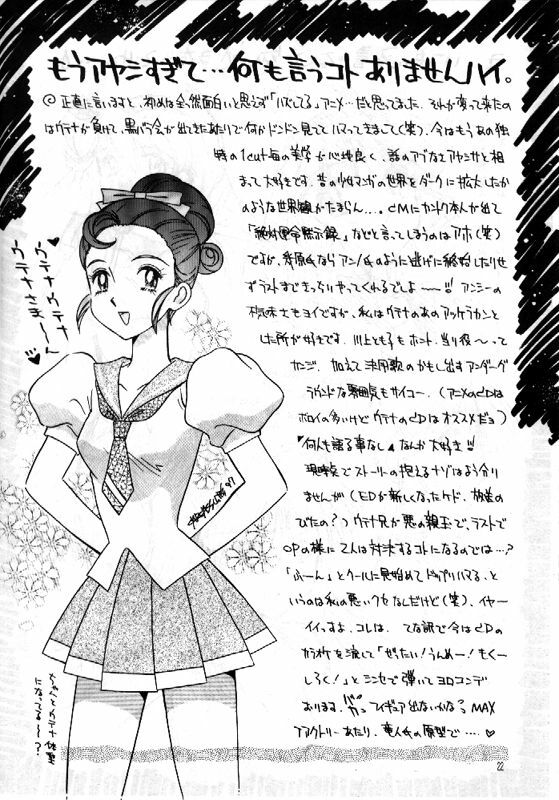 もうアヤシすぎて…何も言うコトありませんハイ。
◎正直に言いますと、初めは全然面白いと思えず「ハズしてる」アニメ…だと思ってました。それが変って来たの
はウテナが負けて、黒バラ会が出てきたあたりで何かドンドン見ててハマってきまして(笑)、今はもうあの独
特の1cut毎の美学が心地良く、話のアブなさアヤシサと相
まって大好きです。昔の少女マンガの世界をダークに拡大したか
のような世界観がたまらん…。CMにカントク本人が出て
「絶対運命黙示録」などと言ってしまうのはアホ(笑)
ですが、幾原氏ならアンノ氏のように逃げに終始したりせ
ずラストまできっちりやってくれるでしょ〜〜!! アンシーの
不気味さもヨイですが、私はウテナのあのアッケラカンと
した所が好きです。川上とも子もホント、当り役〜って
カンジ。加えて決闘歌のかもし出すアンダーグ
ラウンドな雰囲気もサイコー。(アニメのCDは
ボロイの多いけどウテナのCDはオススメだョ)
「何人も語る事なし」なんか大好き!!
現時点でストーリーの抱えるナゾはよう分り
ませんが(EDが新しくなったケド、放送の
びたの?)ウテナ兄が悪の親玉で、ラストで
OPの様に2人は対決するコトになるのでは…?
「ふーん」とクールに見始めてドップリハマる、と
いうのは私の悪いクセなんだけど(笑)、イヤー
イイっすよ、コレは。 てな訳で今はCDの
カラオケを流して「ぜったい!うんめー!もくー
しろく!」とシンセで弾いてヨロコンデ
おります。フィギュア出ないかな? MAX
ファクトリーあたり、竜人氏の原型で……♥
ウテナウテナ
ウテナさま〜〜ん
ちゃんとウテナ体型
になってる〜〜?
22